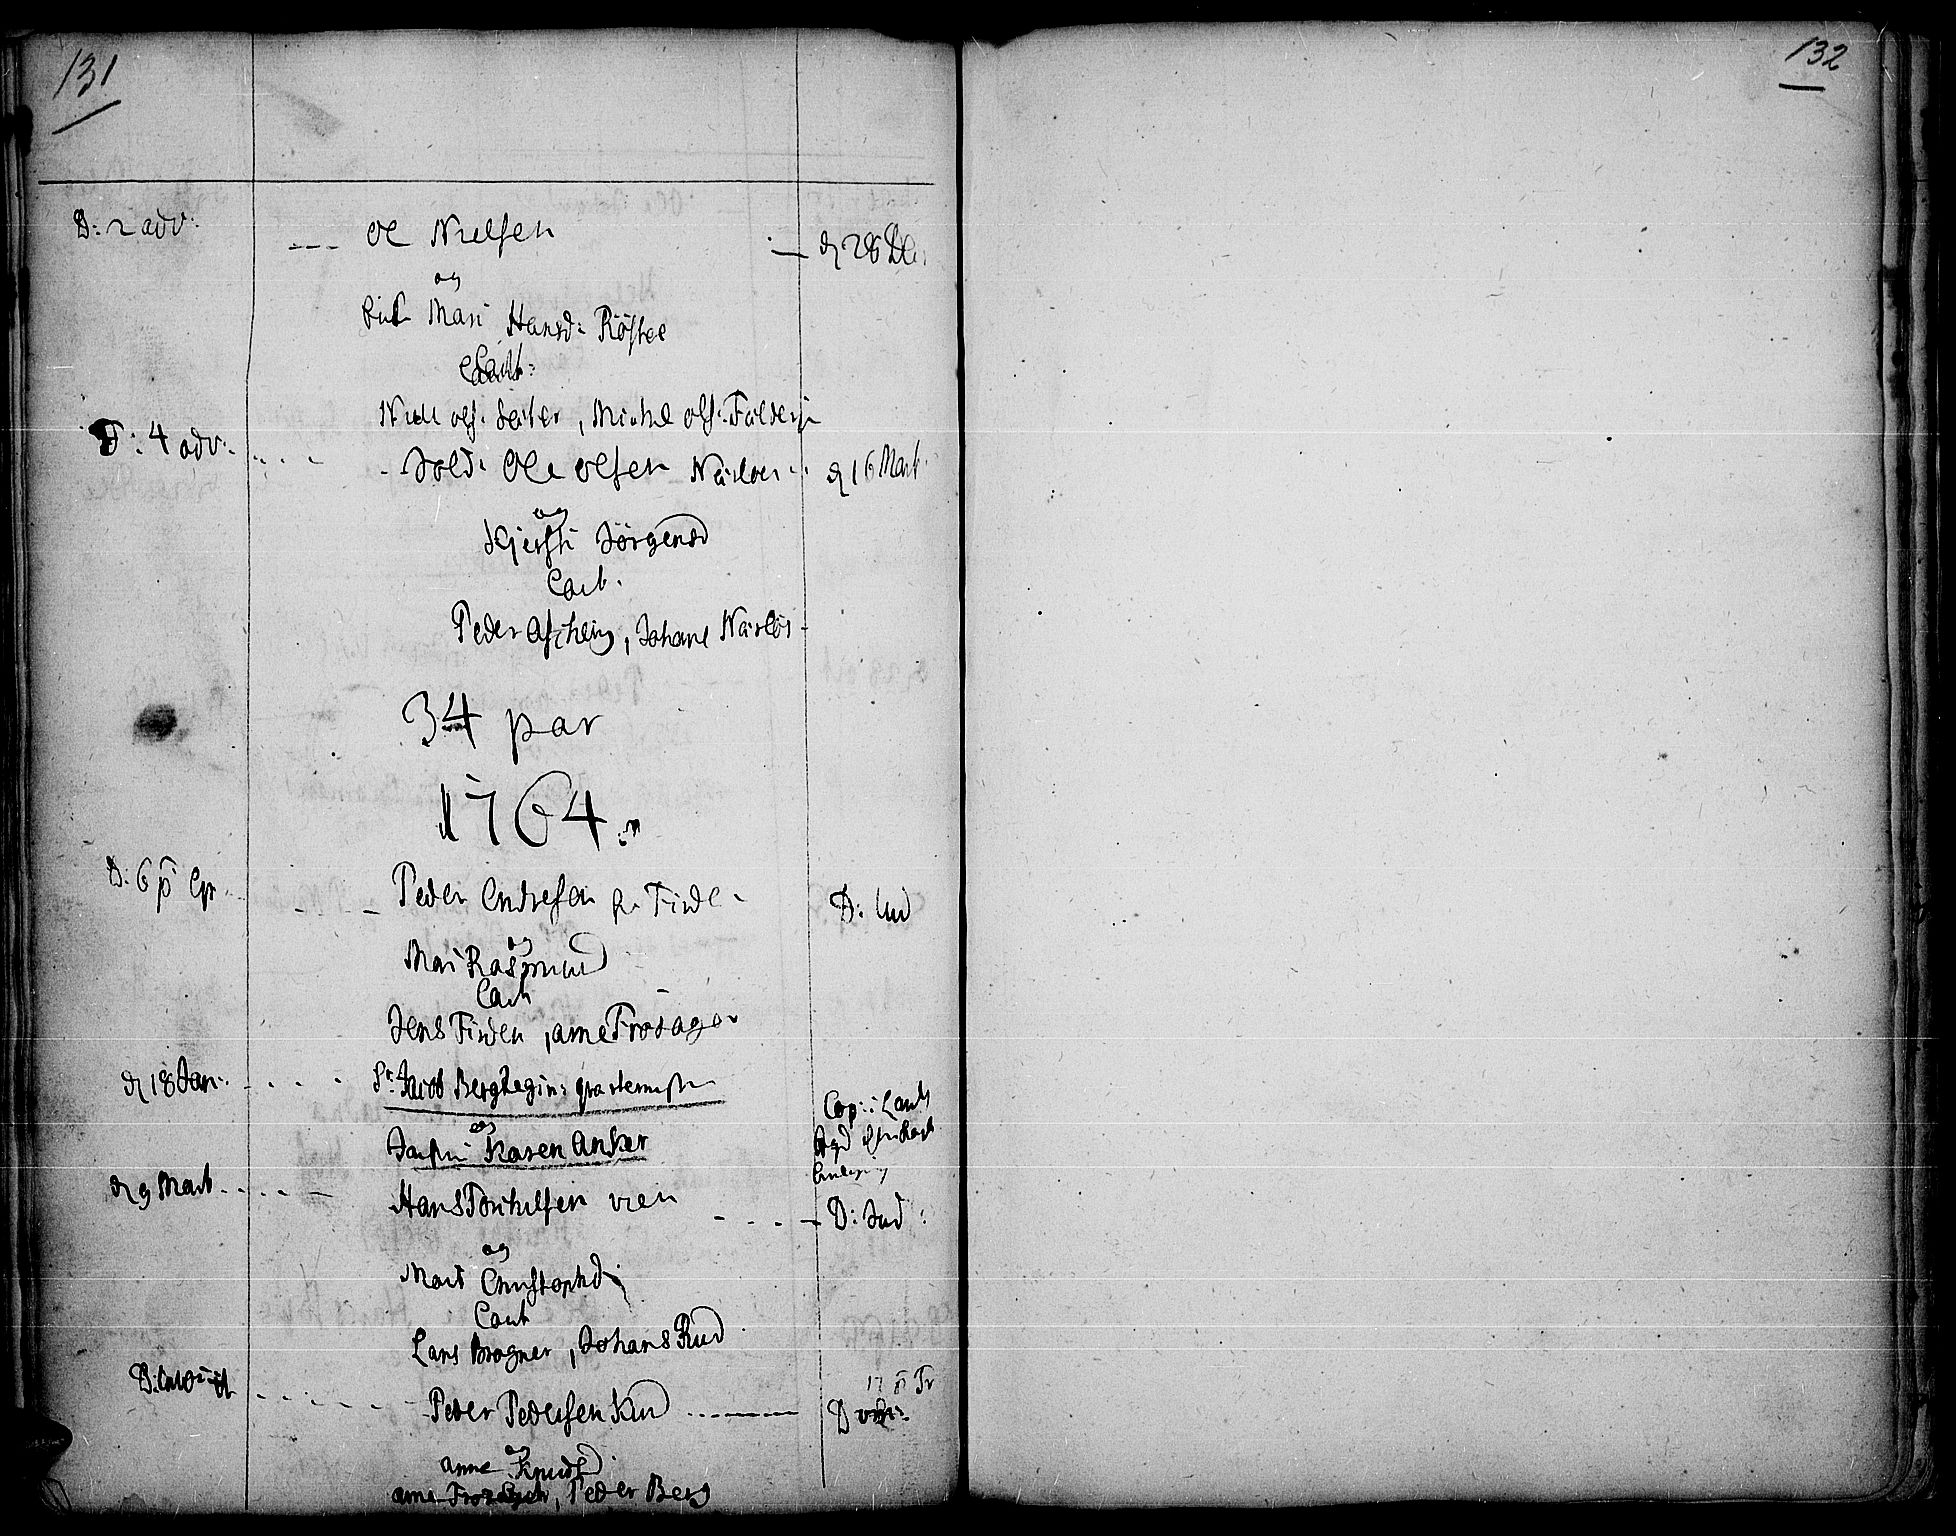 131
D: 2 adv: --- Ole Nielsen -- d 28 De:
og
Mari Hansd: Röstee
Caut:
Niels ols: Seiter, Michel ols: Falden
D: 4 adv: .... Sold: Ole Olsen Närloer d 16 Mart.
og
Kjersti Jörgensd
Caut.
Peder Ascheim, Johane Närlör
34 par
1764.
D: 6 p Ep - - - Peder Endresen Finde - D: Jud
og
Mari Rasmusd
Caut
Jens Finden, arne Frösager
d 18 Jan: . . . . Sr Jacob Berg Regim: qvartermest Cop: i
og
Jomfru Karen Anker
d 9 Mart . . . . - Hans Torkilsen vien - - - D: Jud:
og
Mari Christophd
Caut
Lars Brogner, Johans Rud
17 p Tr
Peder Pedersen Rud ------- D
og
anne Knudsd
arne Frosager, Peder Berg
132